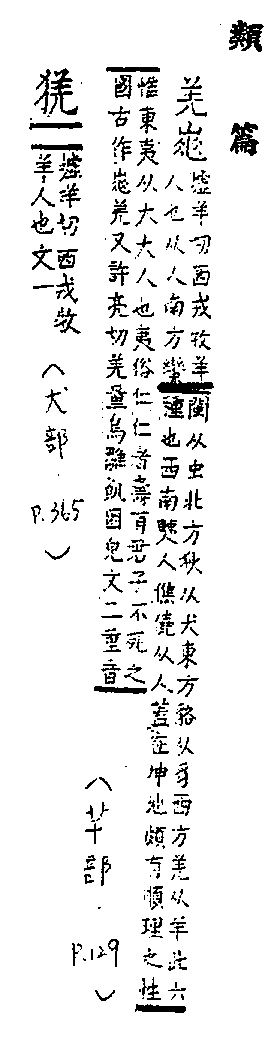 類篇
羌
墟羊切西戎牧羊
人也从人南方蠻
閩从虫北方狄从犬東方貉从豸西方羌从羊此六
種也西南僰人僬僥从人蓋在坤地頗有順理之性
惟東夷从大大人也夷俗仁仁者壽有君子不死之
國古作羌又許亮切羌量鳥雛飢困皃文二重音
(羊部.P.129)
墟羊切西戎牧
羊人也文一
(犬部.P.365)